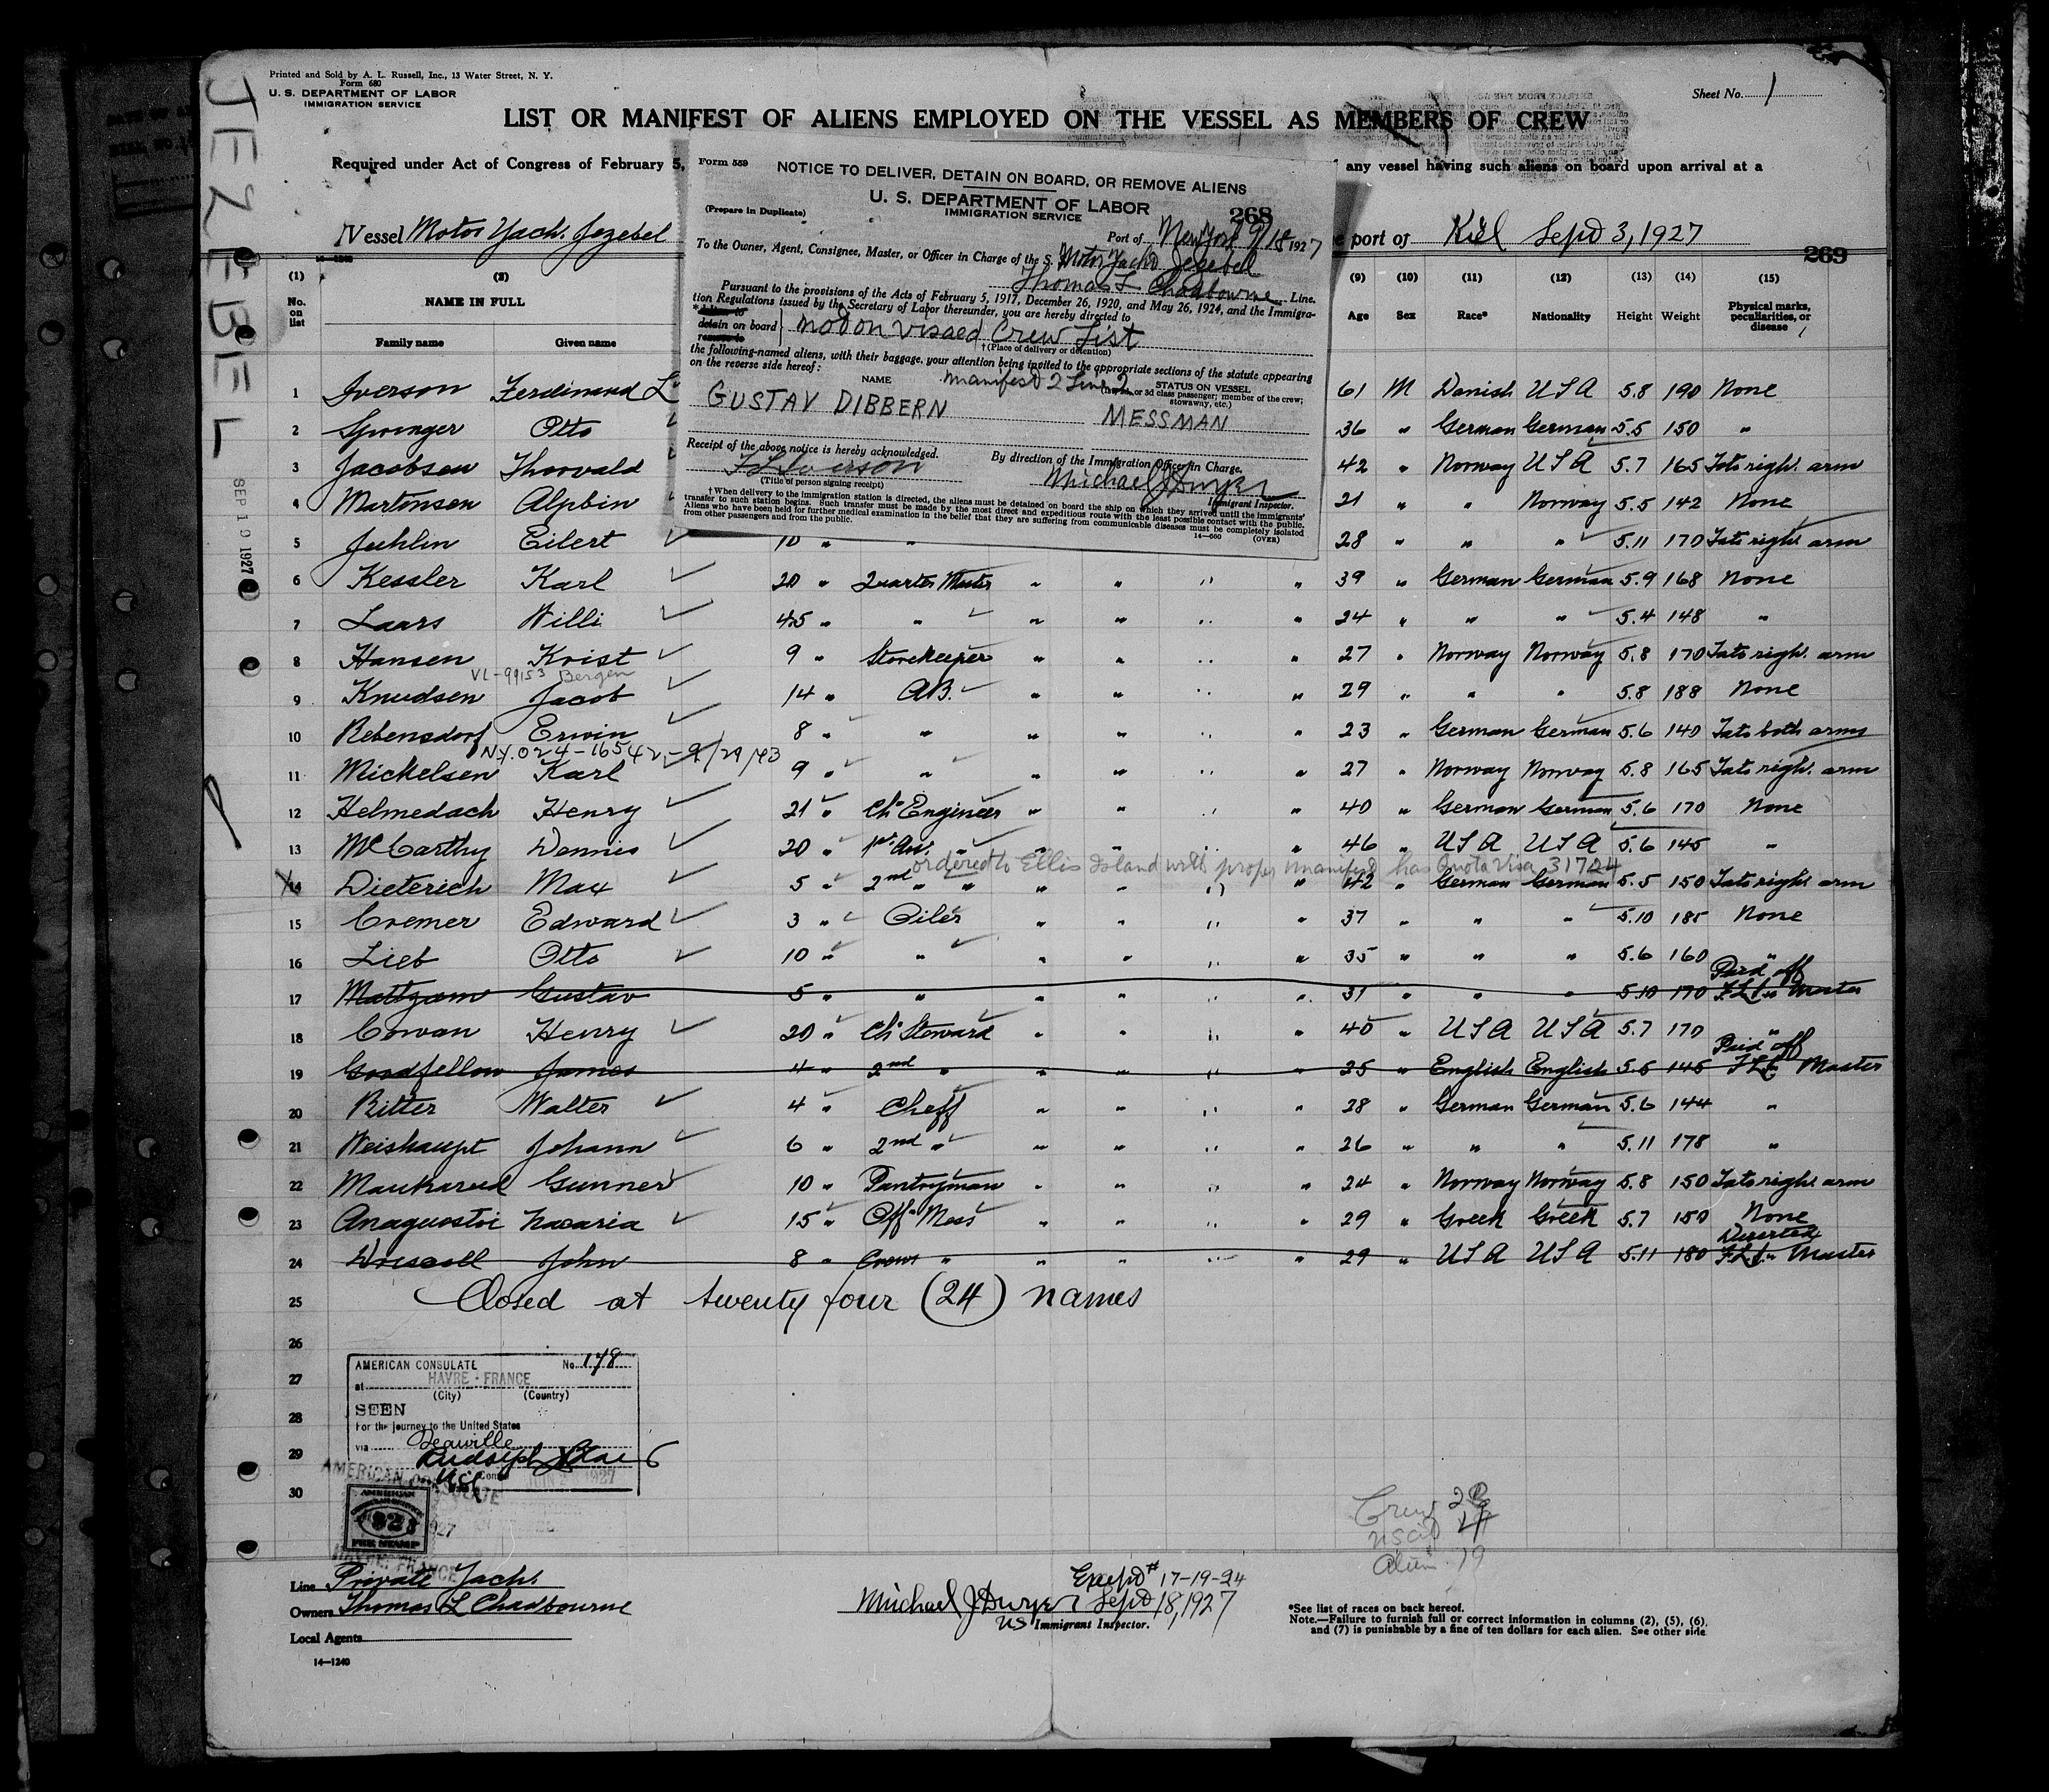 Printed and Sold by A. L. Russell, Inc., 13 Water Street, N. Y.
Form 680
U. S. DEPARTMENT OF LABOR
IMMIGRATION SERVICE
Sheet No. 1
JEZEBEL
SEP 19 1927
LIST OR MANIFEST OF ALIENS EMPLOYED ON THE VESSEL AS MEMBERS OF CREW
Required under Act of Congress of February 5,
any vessel having such aliens on board upon arrival at a
Vessel Motor Yach. Jezebel
e port of Kiel Sept 3, 1927
269
Form 559
NOTICE TO DELIVER, DETAIN ON BOARD, OR REMOVE ALIENS
U. S. DEPARTMENT OF LABOR
IMMIGRATION SERVICE
(Prepare in Duplicate)
268
Port of New York 9/18 1927
To the Owner, Agent, Consignee, Master, or Officer in Charge of the S. Motor Yacht Jezebel
Thomas L Chadbourne Line.
Pursuant to the provisions of the Acts of February 5, 1917, December 26, 1920, and May 26, 1924, and the Immigra-
tion Regulations issued by the Secretary of Labor thereunder, you are hereby directed to
detain on board
remove to
not on visaed Crew List
†(Place of delivery or detention)
the following-named aliens, with their baggage, your attention being invited to the appropriate sections of the statute appearing
on the reverse side hereof:
NAME manifest 2 Line 2 STATUS ON VESSEL
or 3d class passenger; member of the crew;
stowaway, etc.)
GUSTAV DIBBERN MESSMAN
Receipt of the above notice is hereby acknowledged.
By direction of the Immigration Officer in Charge.
F L Iverson
(Title of person signing receipt)
Michael J Dwyer
Immigrant Inspector.
†When delivery to the immigration station is directed, the aliens must be detained on board the ship on which they arrived until the immigrants'
transfer to such station begins. Such transfer must be made by the most direct and expeditious route with the least possible contact with the public.
Aliens who have been held for further medical examination in the belief that they are suffering from communicable diseases must be completely isolated
from other passengers and from the public.
14—660 (OVER)
(1) (2) (9) (10) (11) (12) (13) (14) (15)
No. on list NAME IN FULL Age Sex Race* Nationality Height Weight Physical marks, peculiarities, or disease
Family name Given name
1 Iverson Ferdinand L 61 M Danish USA 5.8 190 None
2 Springer Otto 36 " German German 5.5 150 "
3 Jacobsen Thorvald 42 " Norway USA 5.7 165 Tato right arm
4 Martinsen Alpbin 21 " " Norway 5.5 142 None
5 Juhlin Eilert 10 " " 28 " " " 5.11 170 Tato right arm
6 Kessler Karl 20 " Quarter Master " " " " 39 " German German 5.9 168 None
7 Laars Willi 4.5 " " " " " " 24 " " " 5.4 148 "
8 Hansen Krist 9 " Storekeeper " " " " 27 " Norway Norway 5.8 170 Tato right arm
VL-99153 Bergen
9 Knudsen Jacob 14 " A.B. " " " " 29 " " " 5.8 188 None
10 Rebensdorf Erwin 8 " " " " " 23 " German German 5.6 140 Tato both arms
N.Y. 024-16542-9/29/43
11 Mickelsen Karl 9 " " " " " " 27 " Norway Norway 5.8 165 Tato right arm
12 Helmedach Henry 21 " Ch. Engineer " " " " 40 " German German 5.6 170 None
13 McCarthy Dennis 20 " 1st Ass. " " 46 " USA USA 5.6 145 "
ordered to Ellis Island with proper manifest has Quota Visa 31724
14 Dieterich Max 5 " 2nd " " " " " " 42 " German German 5.5 150 Tato right arm
15 Cremer Edward 3 " Oiler " " " " 37 " " " 5.10 185 None
16 Lieb Otto 10 " " " " " " 35 " " " 5.6 160 "
Paid off
17 Gustav 5 " " " " " " 31 " " " 5.10 170 F.L.I. Master
18 Cowan Henry 20 " Ch. Steward " " " " 40 " USA USA 5.7 170 "
Paid off
19 Goodfellow James 4 " 2nd " " " " " 25 " English English 5.5 145 F.L.I. Master
20 Ritter Walter 4 " Cheff " " " " 28 " German German 5.6 144 "
21 Weishaupt Johann 6 " 2nd " " " " " 26 " " " 5.11 178 "
22 Maukarud Gunner 10 " Pantryman " " " " 24 " Norway Norway 5.8 150 Tato right arm
23 Anagnostoi Nazaria 15 " Off. Mess " " " " 29 " Greek Greek 5.7 150 None
Deserted
24 Driscoll John 8 " Crew " " " " " 29 " USA USA 5.11 180 F.L.I. Master
25 Closed at twenty four (24) names
26
27
28
29
30
AMERICAN CONSULATE No. 178
at HAVRE - FRANCE
(City) (Country)
SEEN
For the journey to the United States
via Deauville
Consul
AMERICAN
FEE STAMP
HAVRE, FRANCE
Crew
USCit
Alien 19
Line Private Yach.
Owners Thomas L Chadbourne
Local Agents
14—1240
Except # 17-19-24
Michael J Dwyer Sept 18, 1927
US Immigrant Inspector.
*See list of races on back hereof.
Note.—Failure to furnish full or correct information in columns (2), (5), (6),
and (7) is punishable by a fine of ten dollars for each alien. See other side.